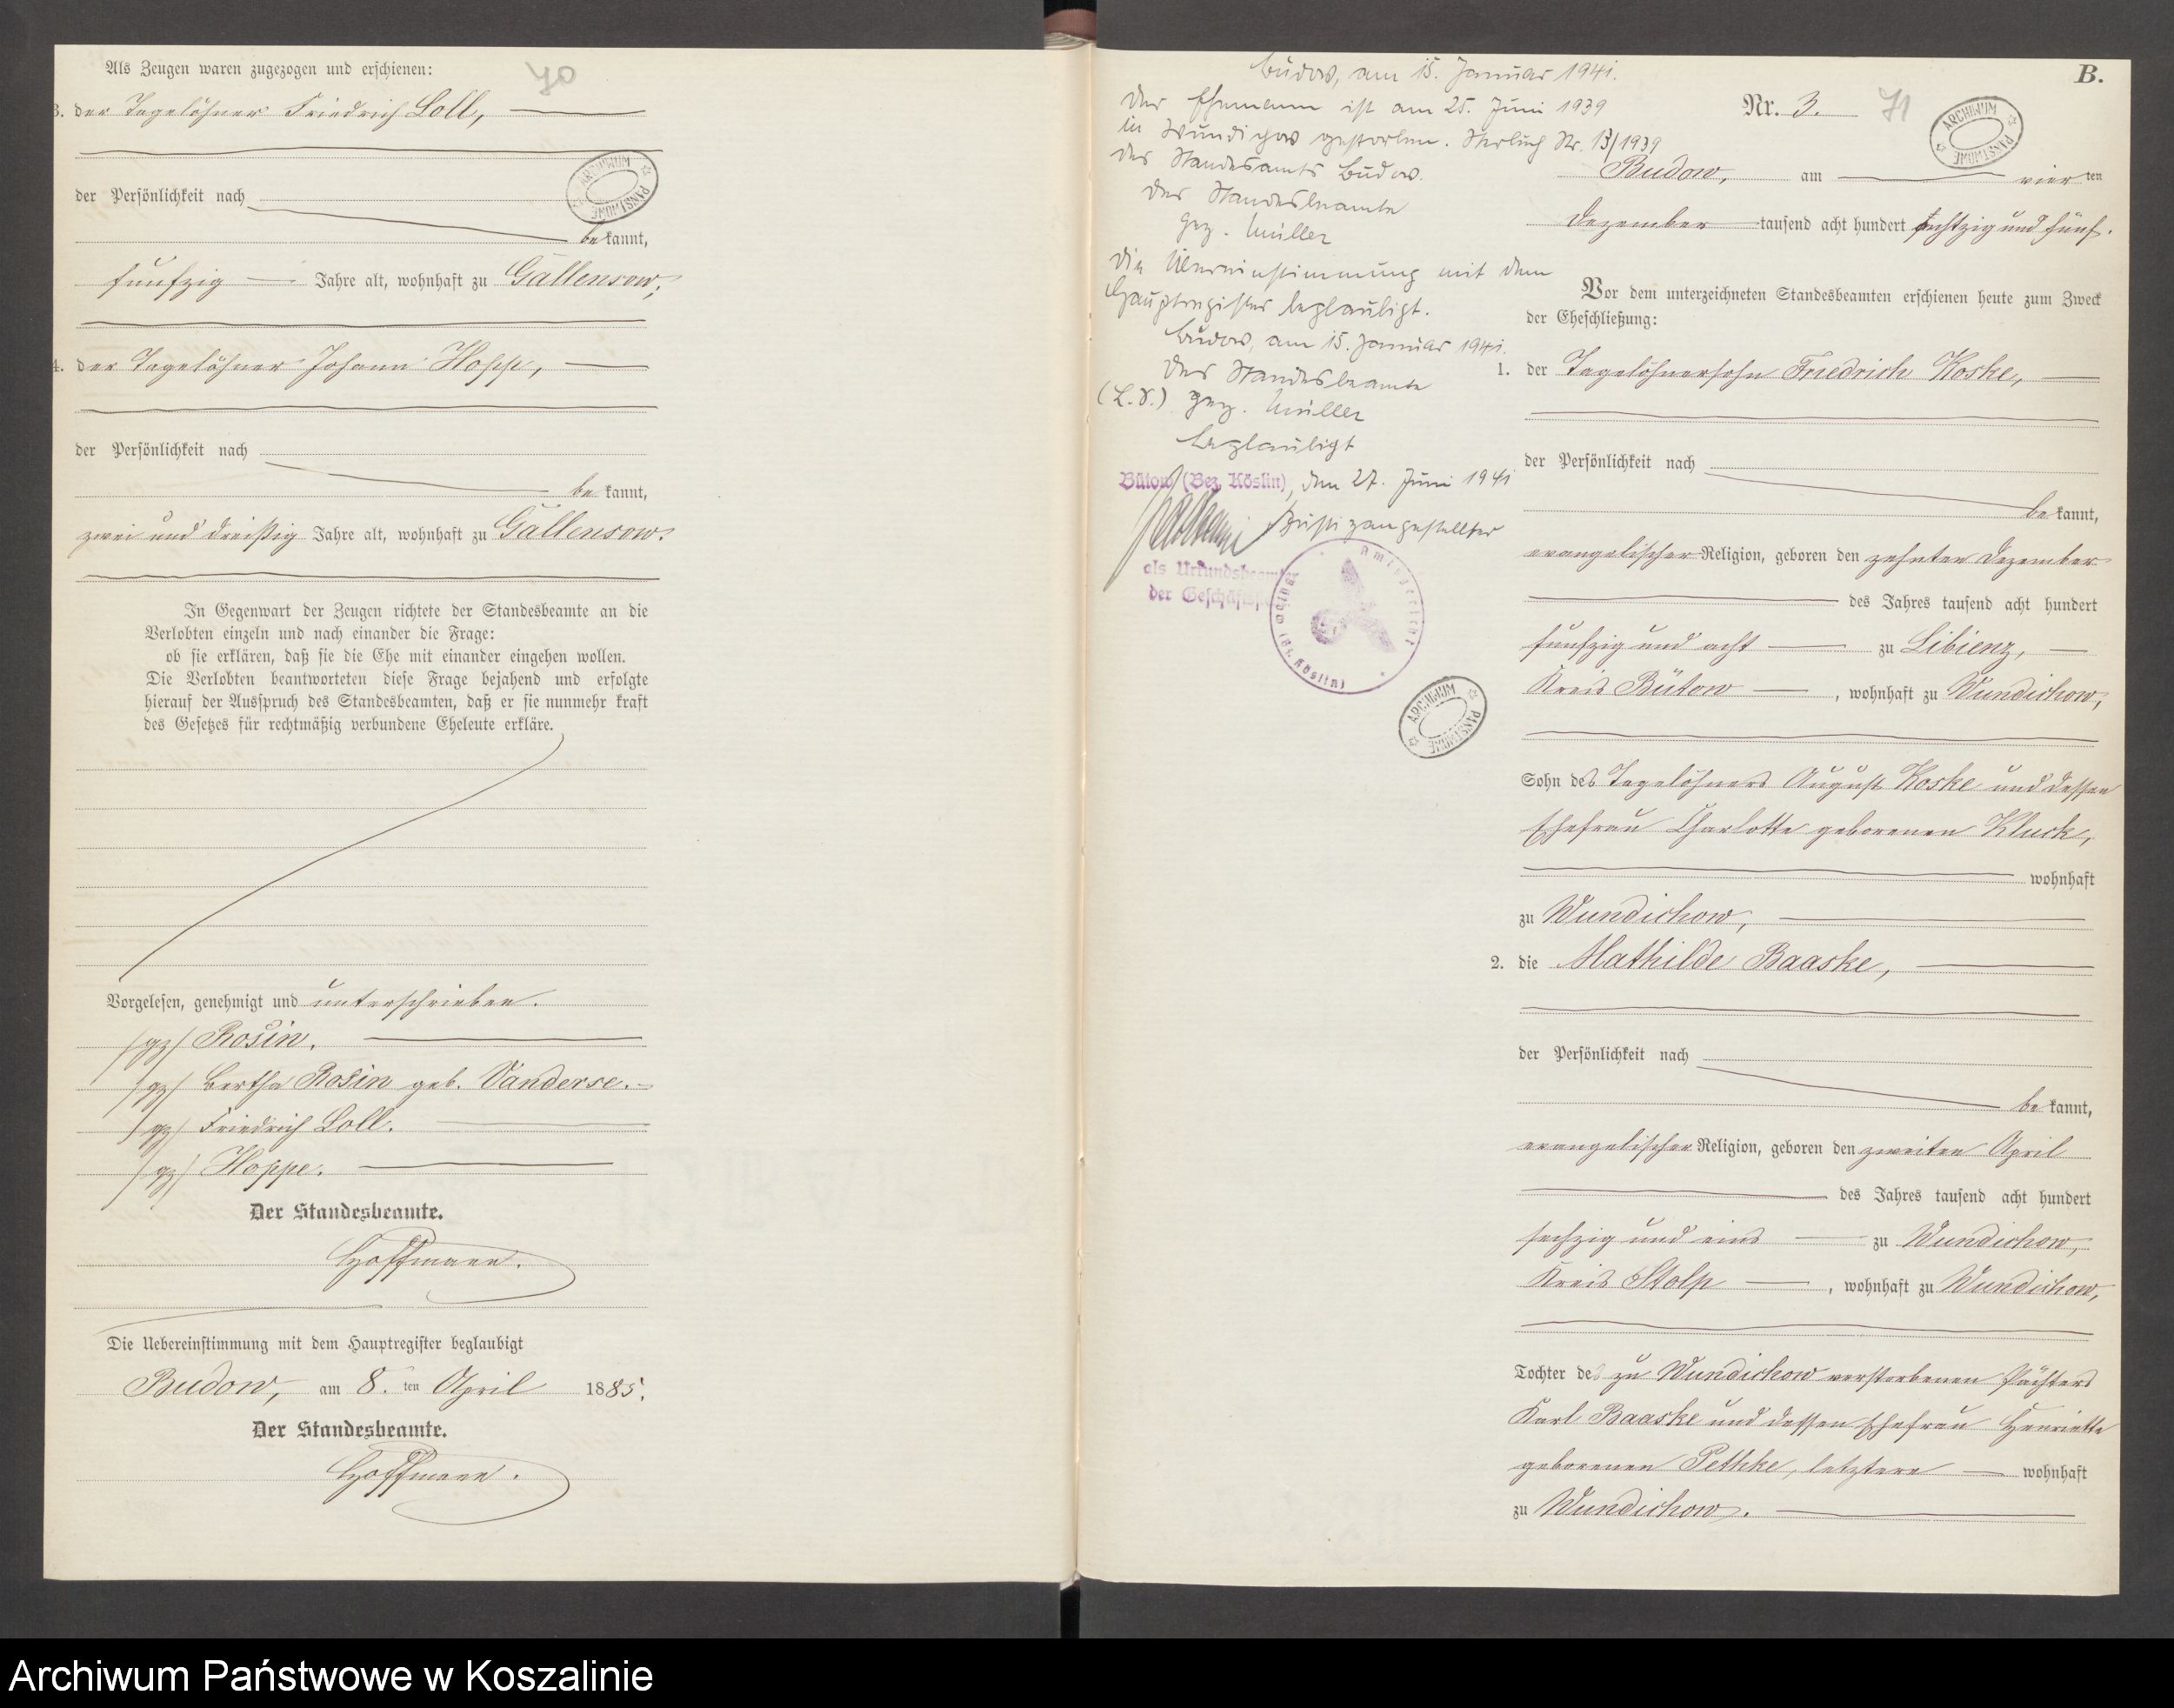 Als Zeugen waren zugezogen und erschienen:
70
3. der Tagelöhner Friedrich Loll,
der Persönlichkeit nach
bekannt,
fünfzig Jahre alt, wohnhaft zu Gallensow,
4. der Tagelöhner Johann Hopp,
der Persönlichkeit nach
bekannt,
zwei und dreißig Jahre alt, wohnhaft zu Gallensow.
In Gegenwart der Zeugen richtete der Standesbeamte an die
Verlobten einzeln und nach einander die Frage:
ob sie erklären, daß sie die Ehe mit einander eingehen wollen.
Die Verlobten beantworteten diese Frage bejahend und erfolgte
hierauf der Ausspruch des Standesbeamten, daß er sie nunmehr kraft
des Gesetzes für rechtmäßig verbundene Eheleute erkläre.
Vorgelesen, genehmigt und unterschrieben.
/gz/ Rosin.
/gz/ Bertha Rosin geb. Vanderse.
/gz/ Friedrich Loll.
/gz/ Hoppe.
Der Standesbeamte.
Hoffmann.
Die Uebereinstimmung mit dem Hauptregister beglaubigt
Budow, am 8. ten April 1885.
Der Standesbeamte.
Hoffmann.
ARCHIWUM PAŃSTWOWE
Budow, am 15. Januar 1941.
Der Ehemann ist am 25. Juni 1939
in Wundichow gestorben. Sterbbuch Nr. 13/1939
des Standesamts Budow.
Der Standesbeamte
gez. Müller
Die Übereinstimmung mit dem
Hauptregister beglaubigt.
Budow, am 15. Januar 1941.
Der Standesbeamte
(L.S.) gez. Müller
Beglaubigt
Bütow (Bez. Köslin), den 27. Juni 1941
Justizangestellter
als Urkundsbeamter
der Geschäftsst
Amtsgericht Bütow (Bz. Köslin)
ARCHIWUM PAŃSTWOWE
B.
Nr. 3. 71
ARCHIWUM PAŃSTWOWE
Budow, am vier ten
Dezember tausend acht hundert achtzig und fünf.
Vor dem unterzeichneten Standesbeamten erschienen heute zum Zweck
der Eheschließung:
1. der Tagelöhnersohn Friedrich Koske,
der Persönlichkeit nach
bekannt,
evangelischer Religion, geboren den zehnten Dezember
des Jahres tausend acht hundert
fünfzig und acht zu Libienz,
Kreis Bütow, wohnhaft zu Wundichow,
Sohn des Tagelöhners August Koske und dessen
Ehefrau Charlotte geborenen Kluck,
wohnhaft
zu Wundichow,
2. die Mathilde Baaske,
der Persönlichkeit nach
bekannt,
evangelischer Religion, geboren den zweiten April
des Jahres tausend acht hundert
sechzig und eins zu Wundichow,
Kreis Stolp, wohnhaft zu Wundichow,
Tochter des zu Wundichow verstorbenen Pächters
Karl Baaske und dessen Ehefrau Henriette
geborenen Pethke, letztere wohnhaft
zu Wundichow.
Archiwum Państwowe w Koszalinie